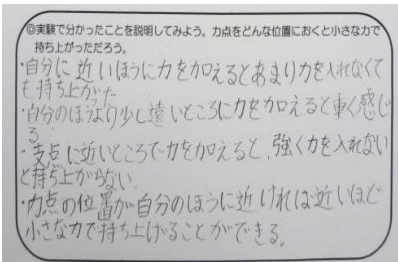 ◎実験で分かったことを説明してみよう。力点をどんな位置におくと小さな力で
持ち上がっただろう。
・自分に近いほうに力を加えるとあまり力を入れなくて
も持ち上がった
・自分のほうより少し遠いところに力を加えると重く感じ
る
・支点に近いところで力を加えると、強く力を入れない
と持ち上がらない
・力点の位置が自分のほうに近ければ近いほど
小さな力で持ち上げることができる。